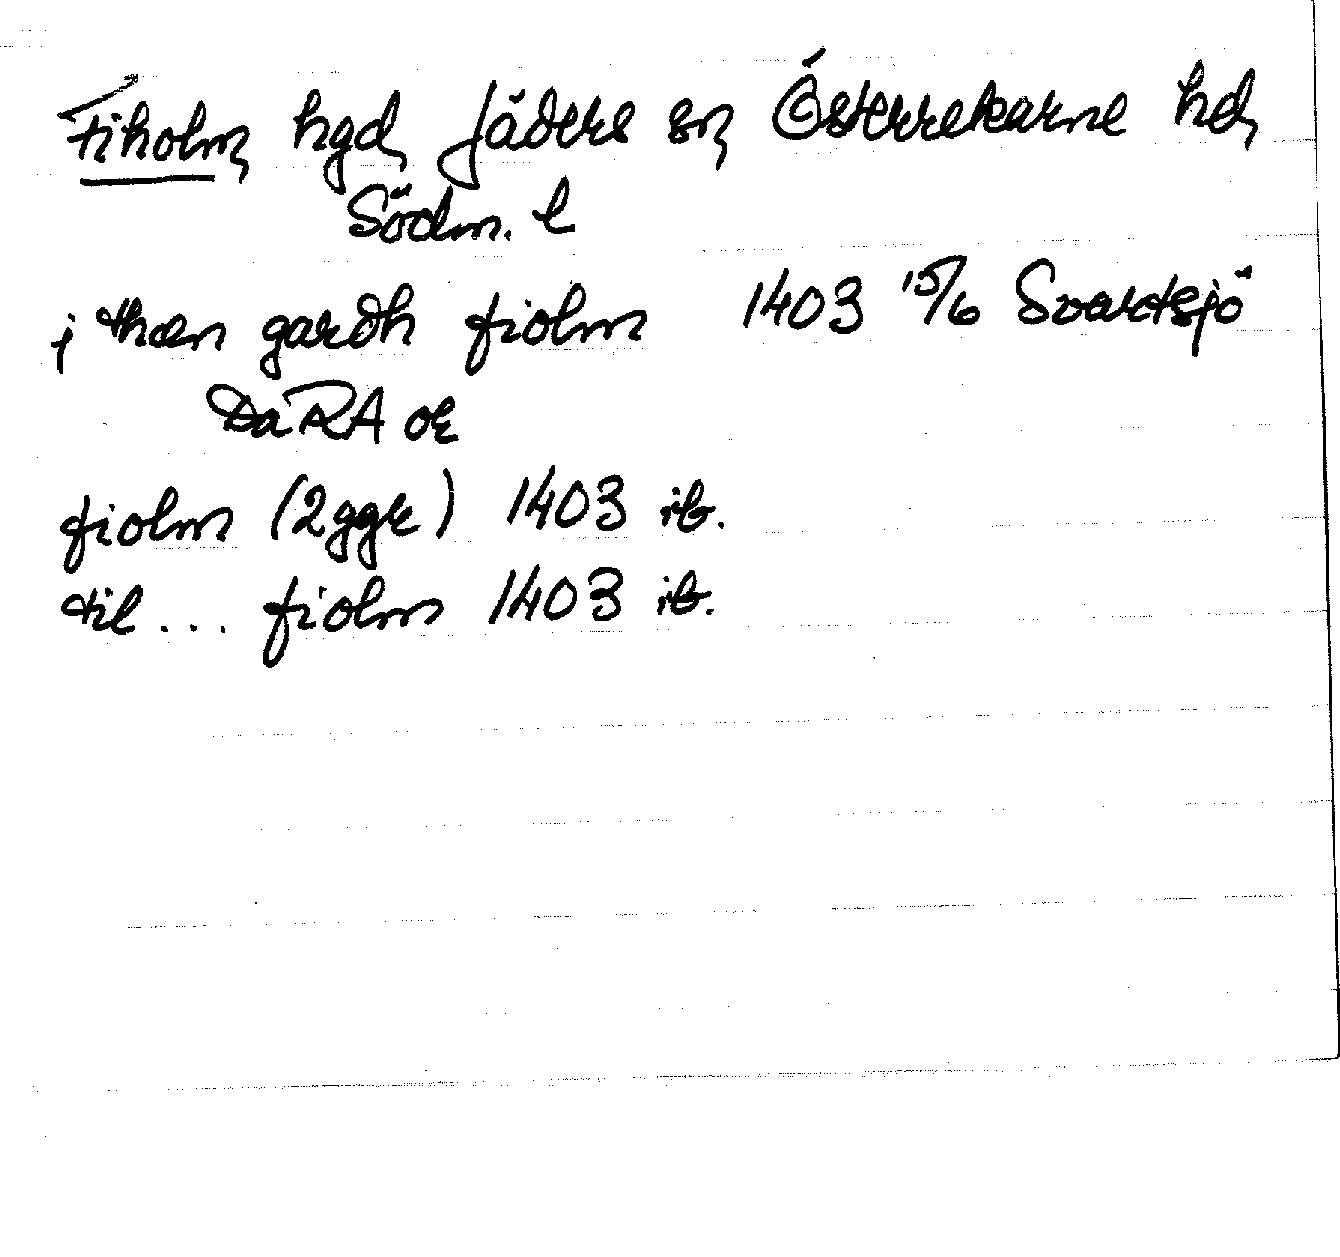 Fiholm, hgd, Jäders sn, Österrekarne hd,
Södm. l
j thæn gardh fiolm 1403 15/6 Svartsjö
DaRA or
fiolm (2 ggr) 1403 ib.
til ... fiolm 1403 ib.